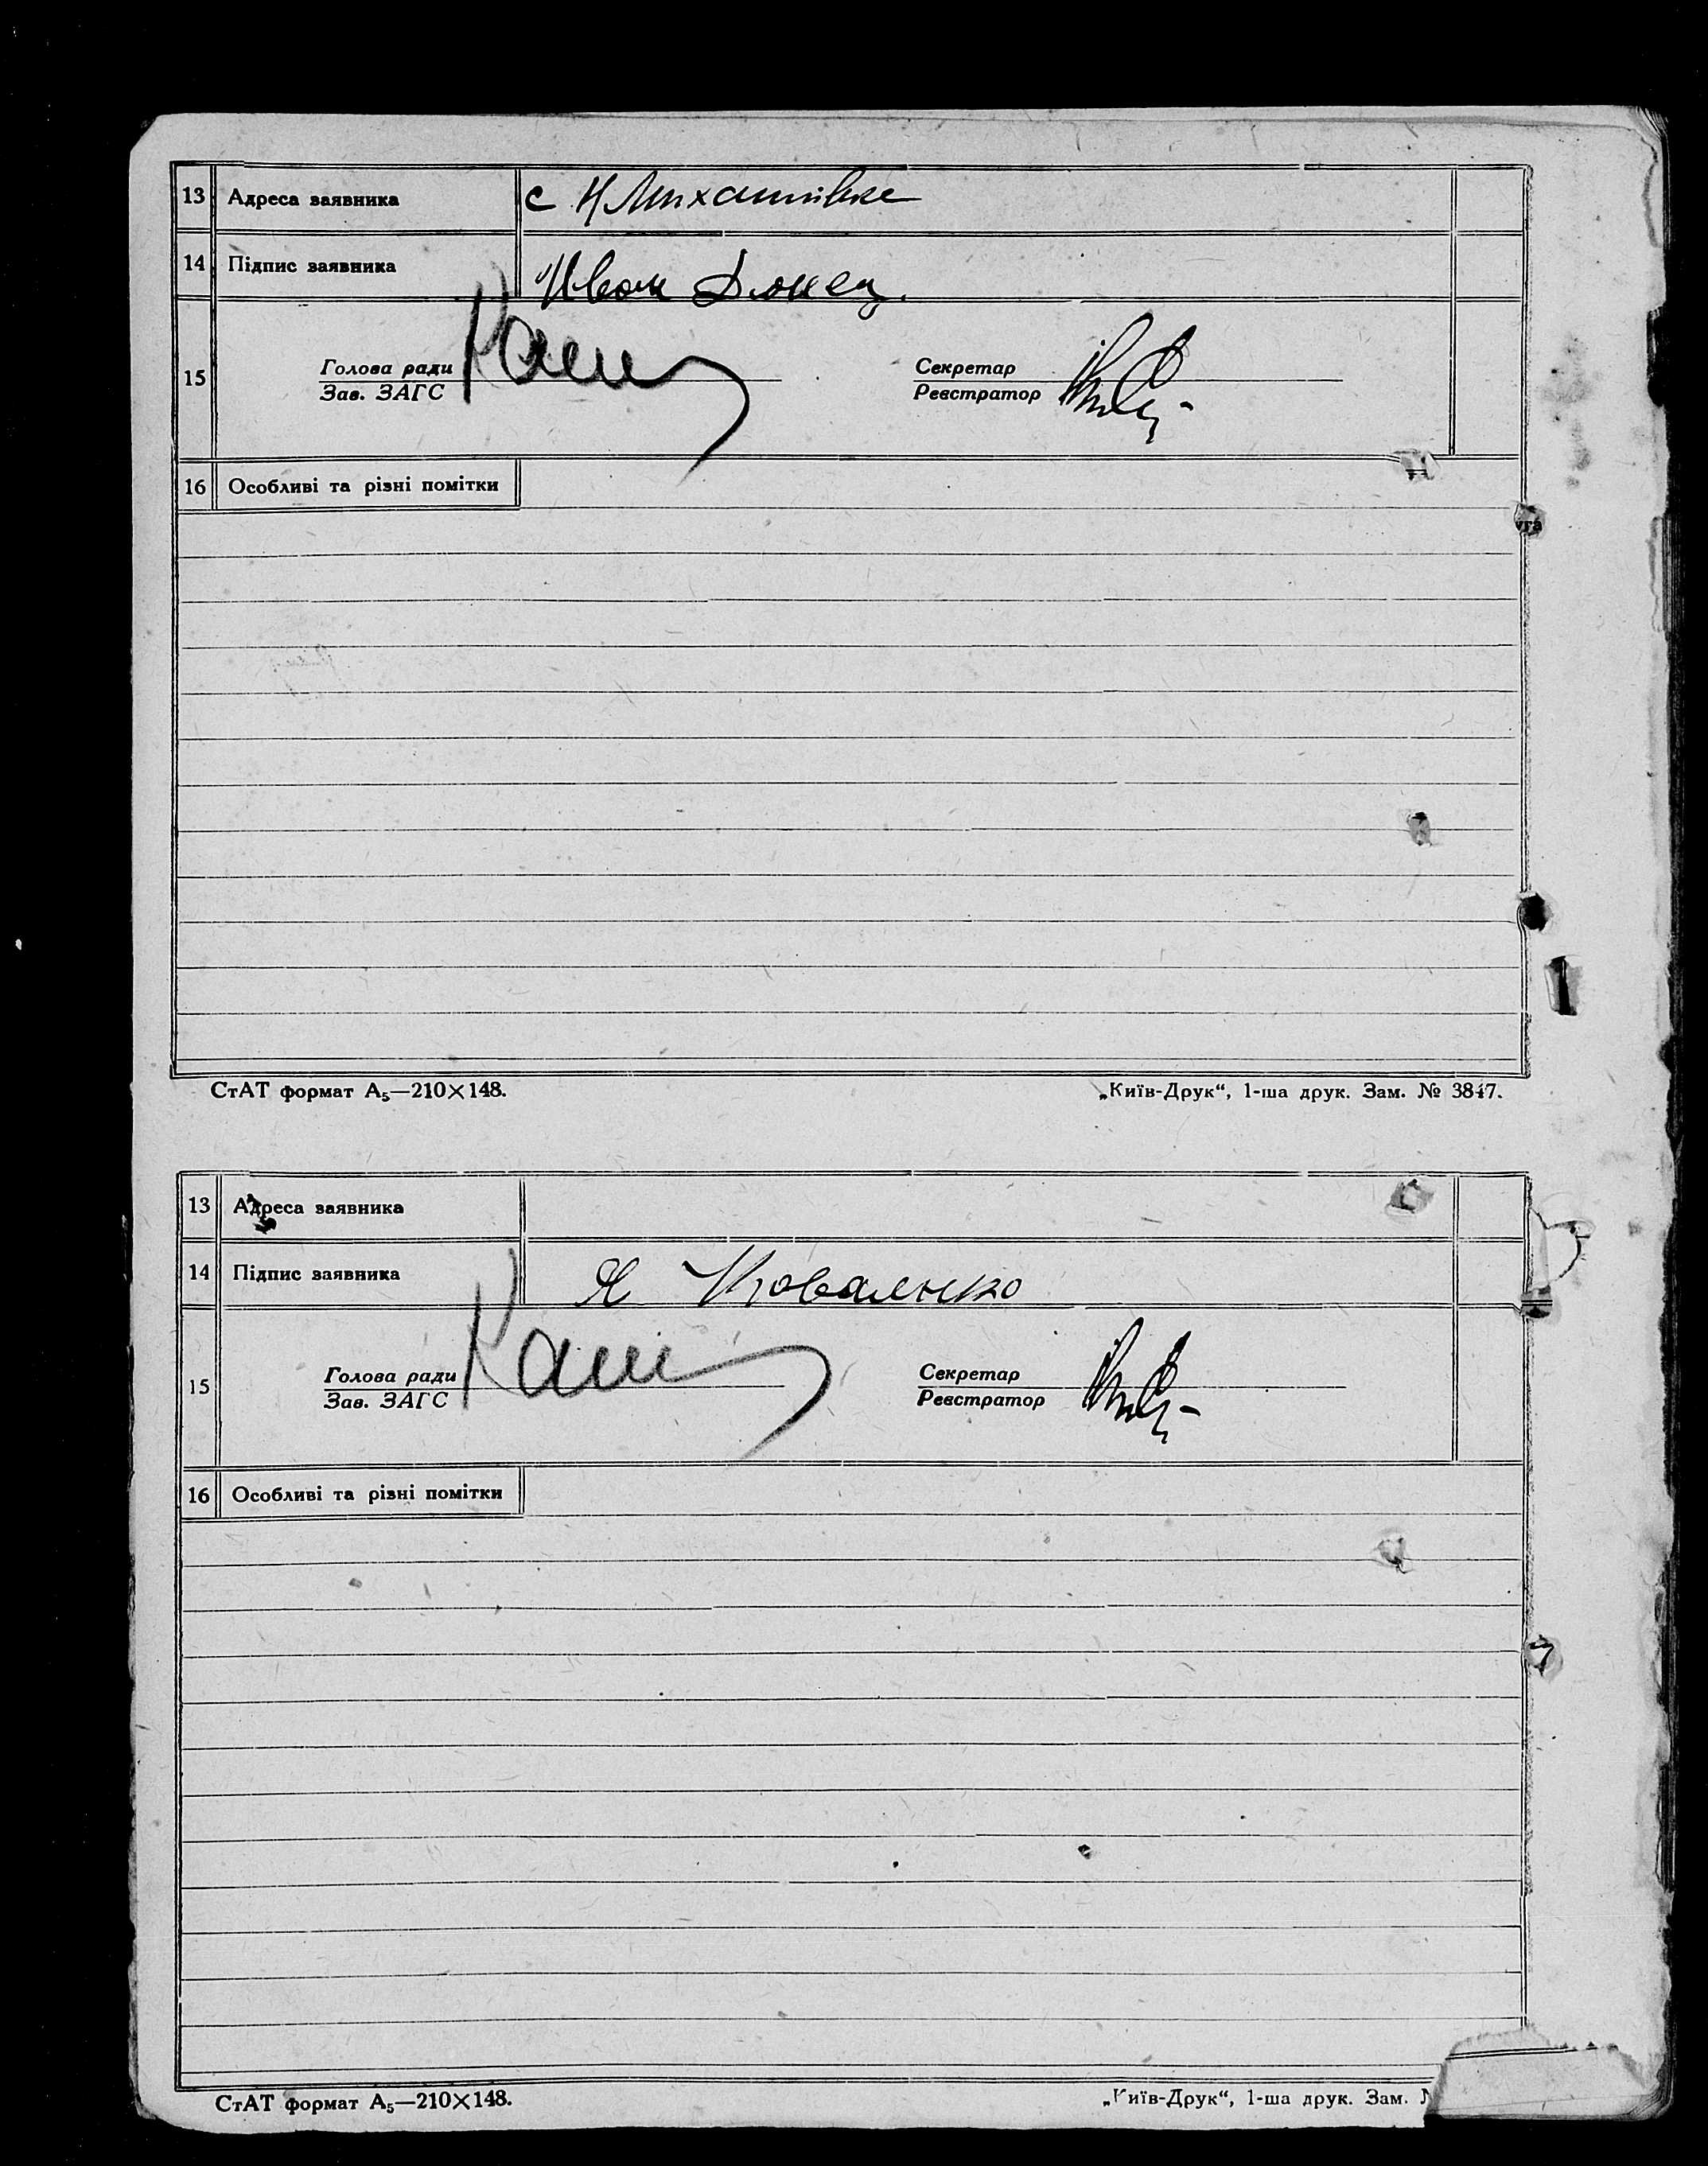 13 Адреса заявника с Н Михайлівка
14 Підпис заявника Иван Донец.
15 Голова ради Секретар
Зав. ЗАГС Реєстратор
16 Особливі та різні помітки
СтАТ формат А₅—210×148. „Київ-Друк“, 1-ша друк. Зам. № 3847.
13 Адреса заявника
14 Підпис заявника Я Коваленко
15 Голова ради Секретар
Зав. ЗАГС Реєстратор
16 Особливі та різні помітки
СтАТ формат А₅—210×148. „Київ-Друк“, 1-ша друк. Зам.